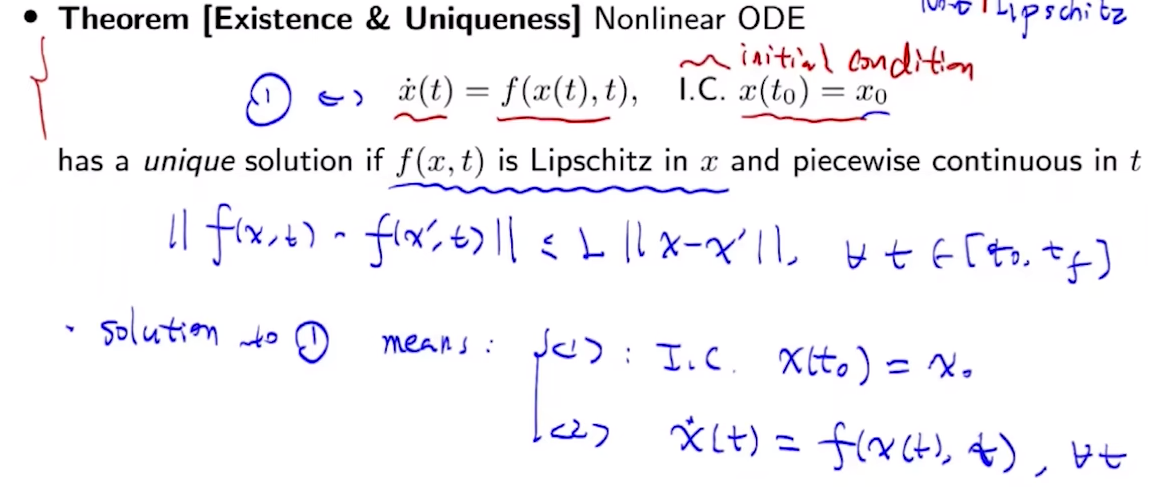 Lipschitz
• Theorem [Existence & Uniqueness] Nonlinear ODE
initial condition
① ⇔ ẋ(t) = f(x(t), t), I.C. x(t₀) = x₀
has a unique solution if f(x, t) is Lipschitz in x and piecewise continuous in t
|| f(x, t) - f(x', t) || ≤ L || x - x' ||, ∀ t ∈ [t₀, t_f]
· solution to ① means: <1> : I.C. x(t₀) = x₀
<2> ẋ(t) = f(x(t), t), ∀t